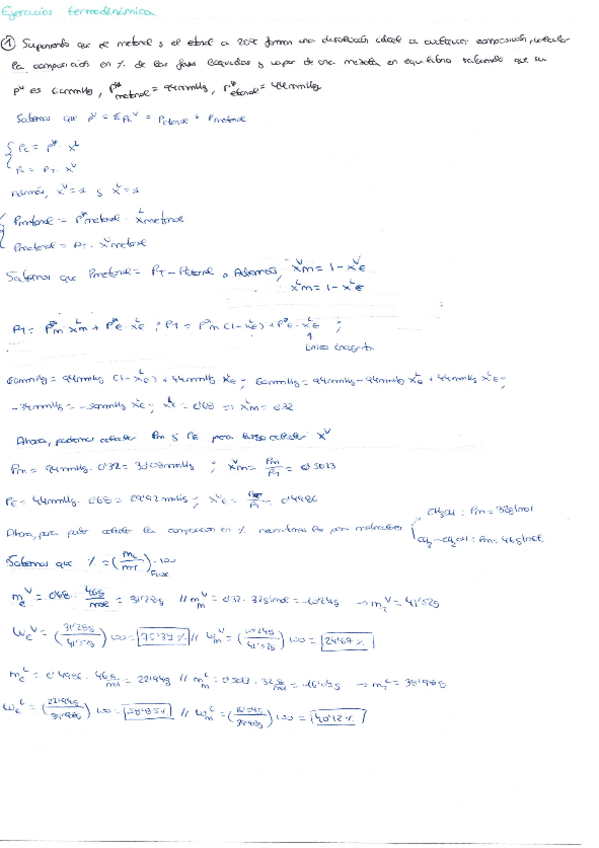 Ejercicios termodinámica
① Suponiendo que el metanol y el etanol a 20ºC forman una disolución ideal a cualquier composición, calcular
la composición en % de las fases líquidas y vapor de una mezcla en equilibrio sabiendo que su
Pᵛ es 60mmHg, P*metanol = 94mmHg, P*etanol = 44mmHg
Sabemos que Pᵛ = ΣPiᵛ = Petanol + Pmetanol
Pi = P* xᴸ
Pi = PT · xᵛ
Además, xᵛ=1 y xᴸ=1
Pmetanol = P*metanol · xᴸmetanol
Pmetanol = PT · xᵛmetanol
Sabemos que Pmetanol = PT - Petanol. Además, xᵛm = 1 - xᵛE
xᴸm = 1 - xᴸE
PT = P*m xᴸm + P*E · xᴸE ; PT = P*m (1 - xᴸE) + P*E · xᴸE ;
única incógnita
60mmHg = 94mmHg (1 - xᴸE) + 44mmHg xᴸE ; 60mmHg = 94mmHg - 94mmHg xᴸE + 44mmHg xᴸE ;
-34mmHg = -50mmHg xᴸE ; xᴸE = 0'68 => xᴸm = 0'32
Ahora, podemos calcular Pm y PE para luego calcular xᵛ
Pm = 94mmHg · 0'32 = 30'08mmHg ; xᵛm = Pm/PT = 0'5013
PE = 44mmHg · 0'68 = 29'92 mmHg ; xᵛE = = 0'4986
Ahora, para poder calcular la composición en % necesitamos los pesos moleculares
CH3OH : Pm = 32g/mol
CH3-CH2OH : Pm = 46g/mol
Sabemos que % = (mi/mT)Fase · 100
mEᵛ = 0'68 · 46g/mol = 31'28g // mmᵛ = 0'32 · 32g/mol = 10'24g → mTᵛ = 41'52g
WEᵛ = (31'28g/41'52g) 100 = 75'33% // Wmᵛ = (10'24g/41'52g) 100 = 24'67%
mEᴸ = 0'4986 · 46g/mol = 22'94g // mmᴸ = 0'5013 · 32g/mol = 16'04g → mTᴸ = 38'98g
WEᴸ = (22'94g/38'98g) 100 = // Wmᴸ = (16'04g/38'98g) 100 =